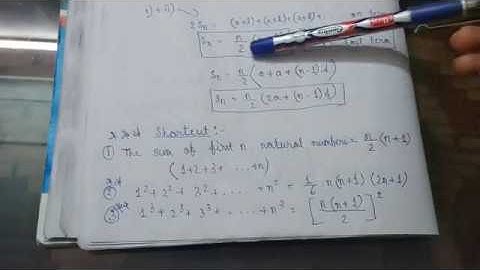 i) + ii) →
2Sn = (a+l) + (a+l) + (a+l) +
Sn = n/2
Sn = n/2 (a + a + (n-1)d)
Sn = n/2 (2a + (n-1)d)
Shortcut :-
① The sum of first n natural numbers = n/2 (n+1)
(1+2+3+ ... +n)
② 1² + 2² + 3² + ... + n² = 1/6 n(n+1) (2n+1)
③ 1³ + 2³ + 3³ + ... + n³ = [n(n+1)/2]²